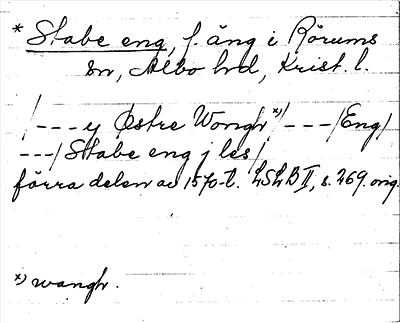 * Stabe eng, f. äng i Rörums
sn, Albo hd, Krist. l.
/--- ý Østre Wongh x)/---/Eng/
---/Stabe eng j les/
förra delen av 1570-t. LSLB II, s. 269. orig.
x) wangh.